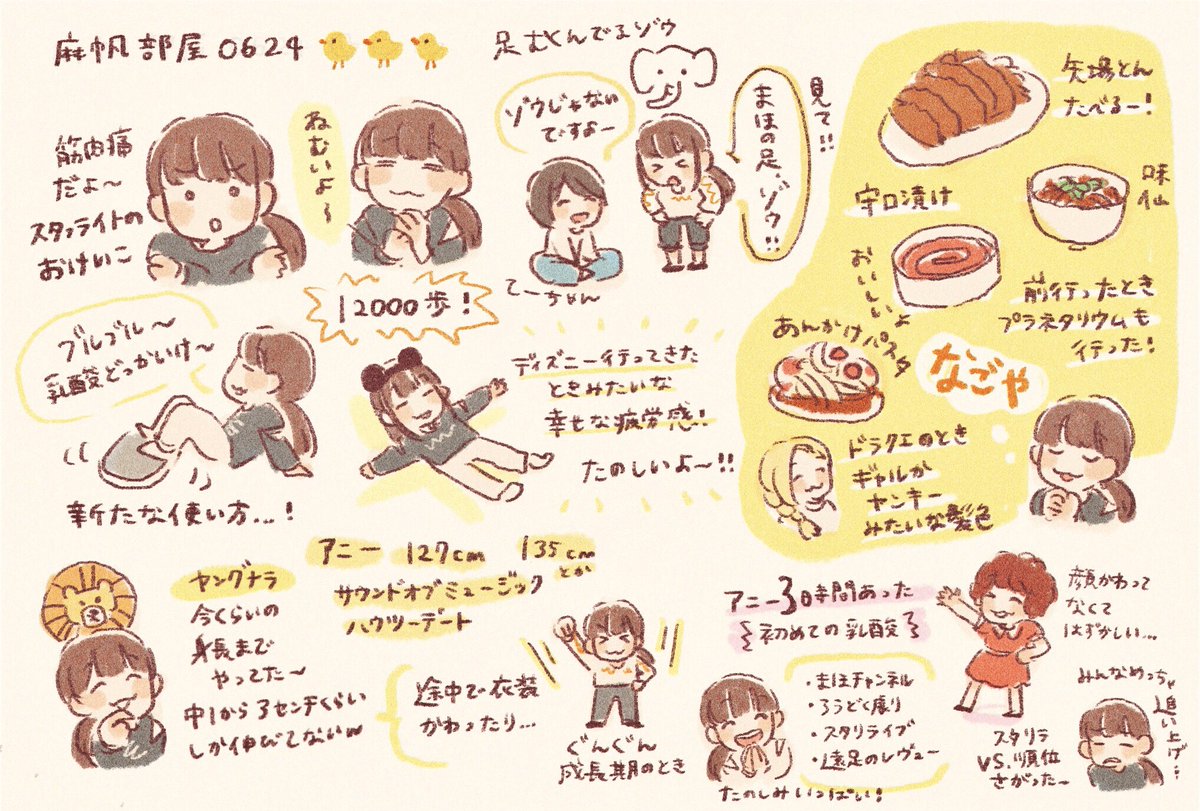 麻帆部屋0624
筋肉痛
だよ〜
スタァライトの
おけいこ
ねむいよ〜
足むくんでるゾウ
ゾウじゃない
ですよー
てーちゃん
見て!!
まほの足、ゾウ!!
矢場とん
たべるー!
味仙
守口漬け
おいしいよ
あんかけパスタ
前行ったとき
プラネタリウムも
行った!
なごや
ドラクエのとき
ギャルか
ヤンキー
みたいな髪色
ブルブル〜
乳酸どっかいけ〜
新たな使い方...!
12000歩!
ディズニー行ってきた
ときみたいな
幸せな疲労感!!
たのしいよ〜!!
ヤングナラ
今くらいの
身長まで
やってた〜
中1から3センチくらい
しか伸びてないw
アニー 127cm 135cm
とか
サウンドオブミュージック
ハウツーデート
途中で衣装
かわったり...
ぐんぐん
成長期のとき
アニー3時間あった
初めての乳酸
・まほチャンネル
・ろうどく座り
・スタリライブ
・遠足のレヴュー
たのしみいっぱい!
顔かわって
なくて
はずかしい...
スタリラ
VS.順位
さがった〜
みんなめっちゃ
追い上げ...